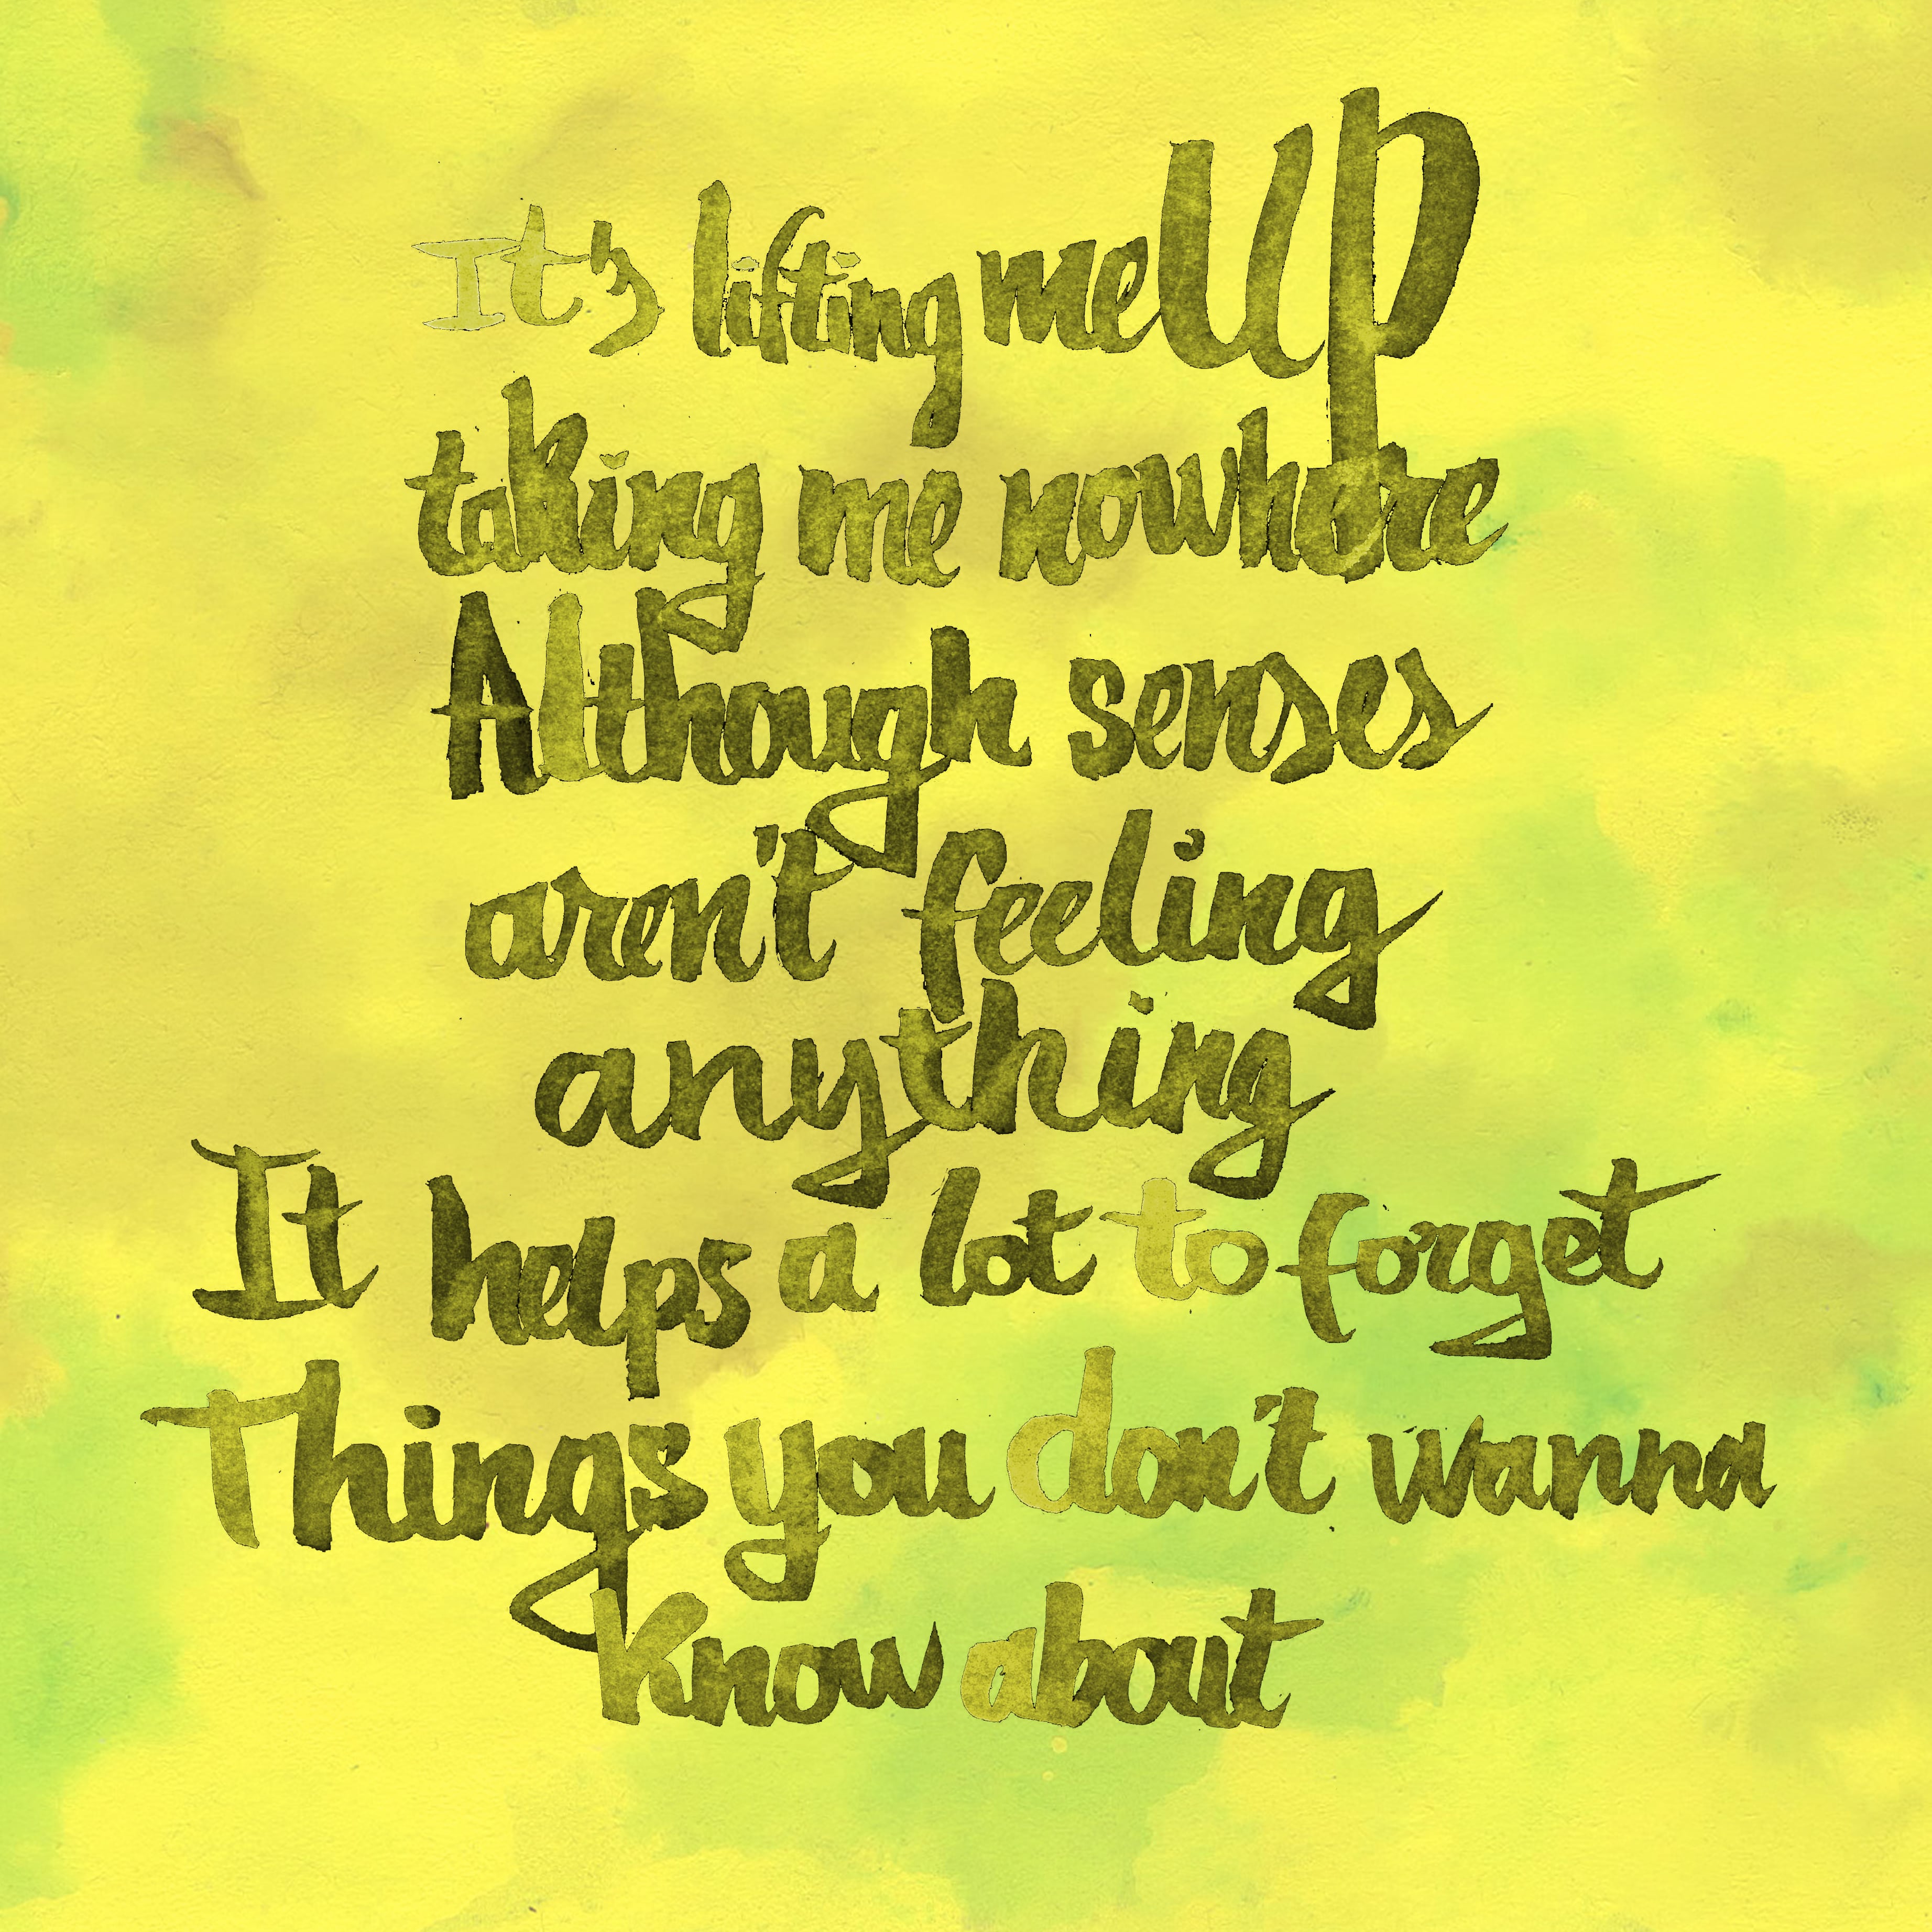 It's lifting me up
taking me nowhere
Although senses
aren't feeling
anything
It helps a lot to forget
Things you don't wanna
Know about